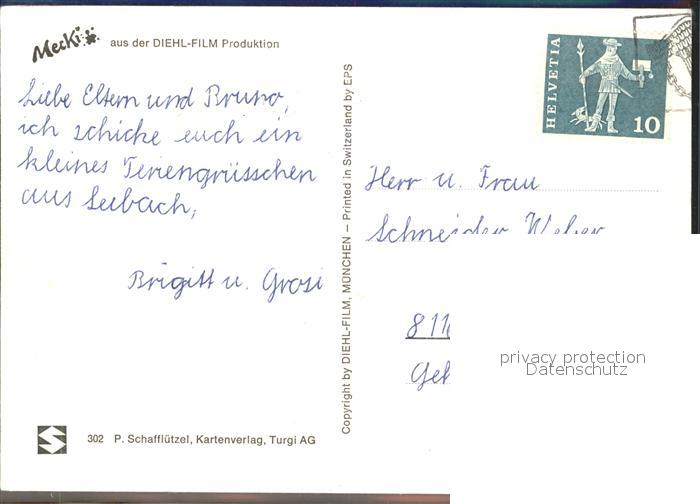 Mecki aus der DIEHL-FILM Produktion
HELVETIA
10
Liebe Eltern und Bruno,
ich schicke euch ein
kleines Feriengrüsschen
aus Seebach,
Brigitt u. Grosi
Copyright by DIEHL-FILM, MÜNCHEN — Printed in Switzerland by EPS
Herr u. Frau
Schneider Weber
811
Geh
privacy protection
Datenschutz
S 302 P. Schafflützel, Kartenverlag, Turgi AG